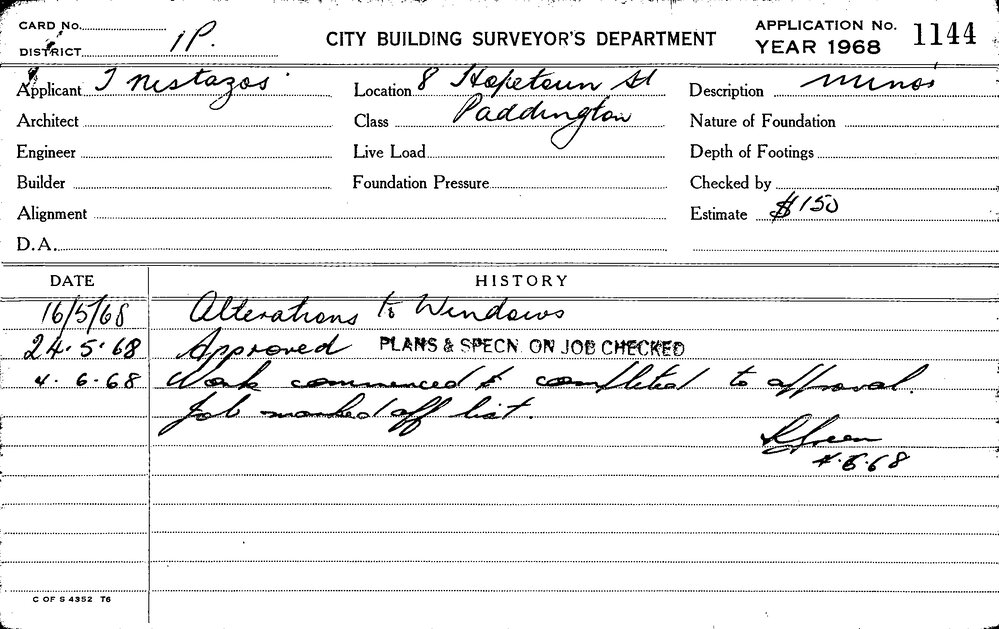 CARD No.
DISTRICT 1P.
CITY BUILDING SURVEYOR'S DEPARTMENT
APPLICATION No. 1144
YEAR 1968
Applicant J Nestazos
Location 8 Hopetoun St
Description Minor
Architect
Class Paddington
Nature of Foundation
Engineer
Live Load
Depth of Footings
Builder
Foundation Pressure
Checked by
Alignment
Estimate $150
D.A.
DATE HISTORY
16/5/68 Alterations to Windows
24.5.68 Approved PLANS & SPECN. ON JOB CHECKED
4.6.68 Work commenced & completed to approval.
Job marked off list.
Green
4.6.68
C OF S 4352 T6